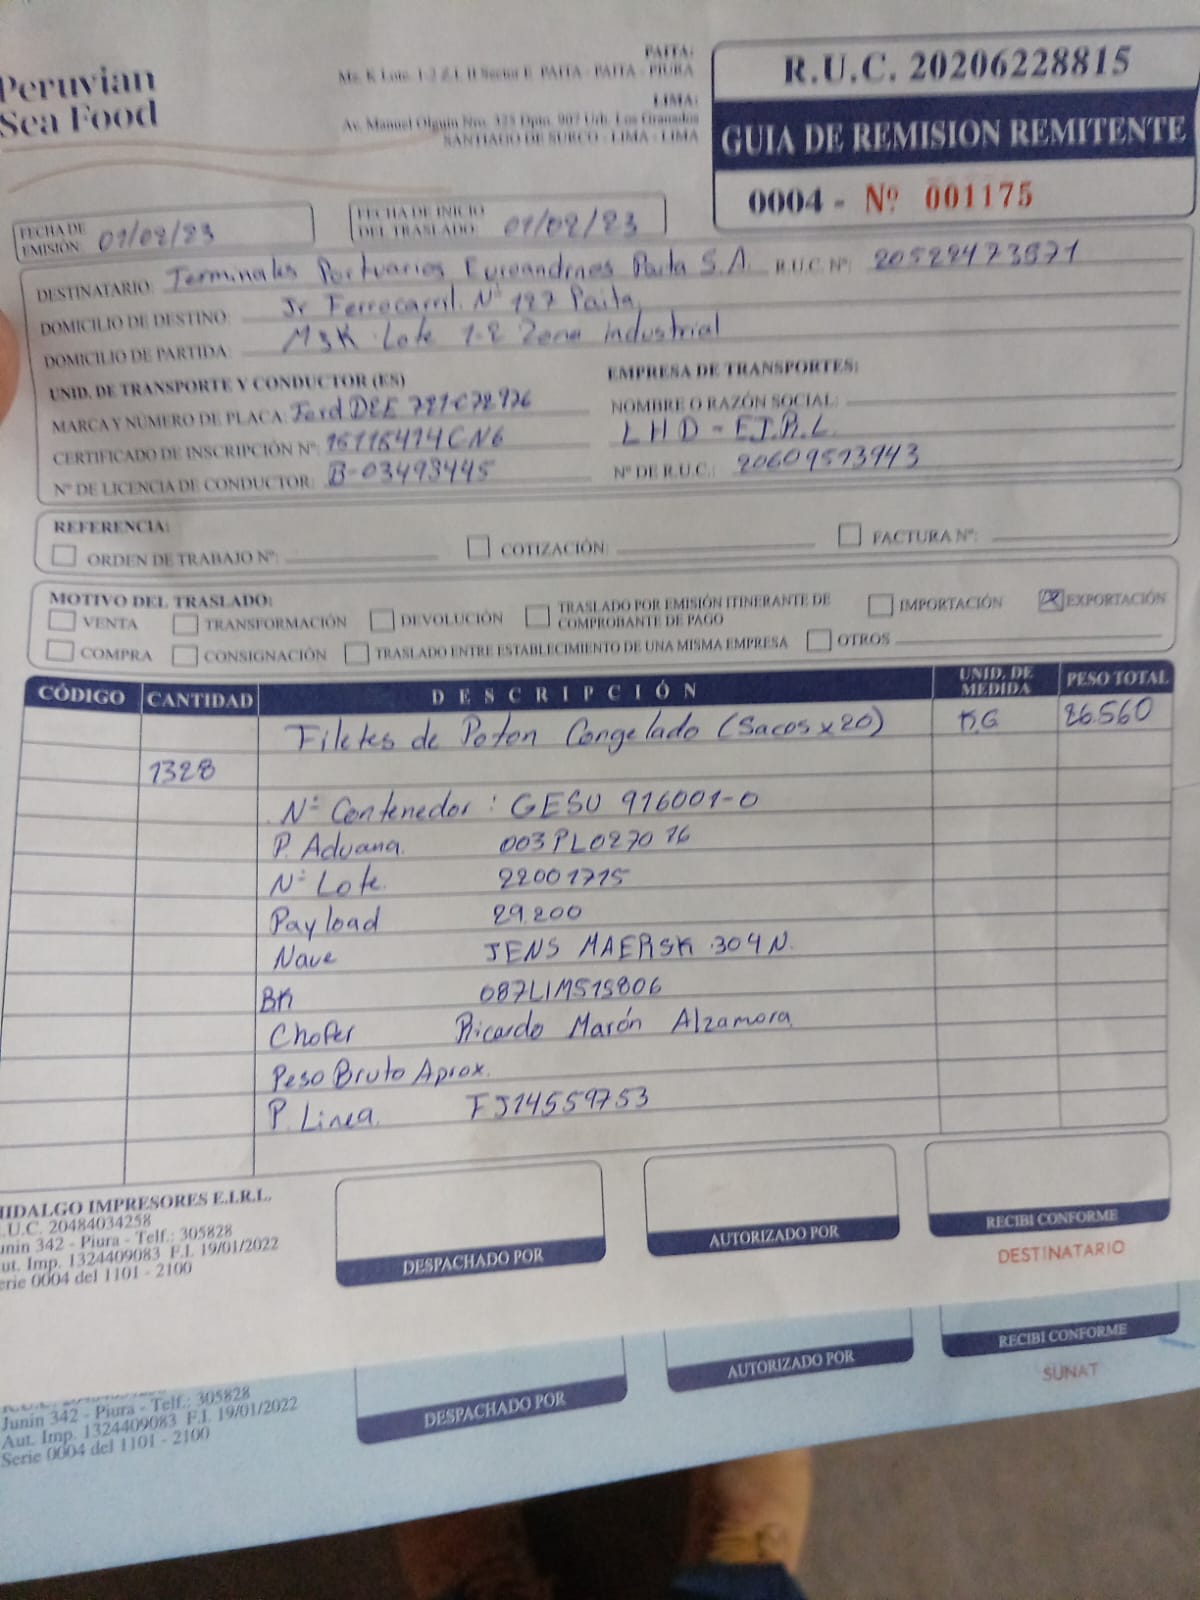 Peruvian
Sea Food
PAITA:
Mz. K Lote. 1-2 Z.I. II Sector E PAITA - PAITA - PIURA
LIMA:
Av. Manuel Olguin Nro. 325 Dpto. 907 Urb. Los Granados
SANTIAGO DE SURCO - LIMA - LIMA
R.U.C. 20206228815
GUIA DE REMISION REMITENTE
0004 - Nº 001175
FECHA DE EMISIÓN: 01/02/23
FECHA DE INICIO DEL TRASLADO: 01/02/23
DESTINATARIO: Terminales Portuarios Euroandinos Paita S.A. R.U.C. Nº: 20522473571
DOMICILIO DE DESTINO: Jr Ferrocarril. Nº 127 Paita
DOMICILIO DE PARTIDA: MzK Lote 1-2 Zona industrial
UNID. DE TRANSPORTE Y CONDUCTOR (ES)
MARCA Y NÚMERO DE PLACA:
CERTIFICADO DE INSCRIPCIÓN Nº: 15115414CNG
Nº DE LICENCIA DE CONDUCTOR: B-03493445
EMPRESA DE TRANSPORTES:
NOMBRE O RAZÓN SOCIAL:
LHD - E.I.R.L.
Nº DE R.U.C.: 20609513943
REFERENCIA:
ORDEN DE TRABAJO Nº:
COTIZACIÓN:
FACTURA Nº:
MOTIVO DEL TRASLADO:
VENTA
TRANSFORMACIÓN
DEVOLUCIÓN
TRASLADO POR EMISIÓN ITINERANTE DE COMPROBANTE DE PAGO
IMPORTACIÓN
EXPORTACIÓN
COMPRA
CONSIGNACIÓN
TRASLADO ENTRE ESTABLECIMIENTO DE UNA MISMA EMPRESA
OTROS
CÓDIGO CANTIDAD DESCRIPCIÓN UNID. DE MEDIDA PESO TOTAL
Filetes de Poton Congelado (Sacos x 20) KG 26.560
1328
Nº Contenedor : GESU 916001-0
P. Aduana. 003PL027016
Nº Lote. 22001715
Payload 29.200
Nave JENS MAERSK 304N.
BK 087LIM515806
Chofer Ricardo Marón Alzamora
Peso Bruto Aprox.
P. Linea. FJ14559753
HIDALGO IMPRESORES E.I.R.L.
.U.C. 20484034258
unin 342 - Piura - Telf.: 305828
ut. Imp. 1324409083 F.I. 19/01/2022
erie 0004 del 1101 - 2100
DESPACHADO POR
AUTORIZADO POR
RECIBI CONFORME
DESTINATARIO
Junin 342 - Piura - Telf.: 305828
Aut. Imp. 1324409083 F.I. 19/01/2022
Serie 0004 del 1101 - 2100
DESPACHADO POR
AUTORIZADO POR
RECIBI CONFORME
SUNAT